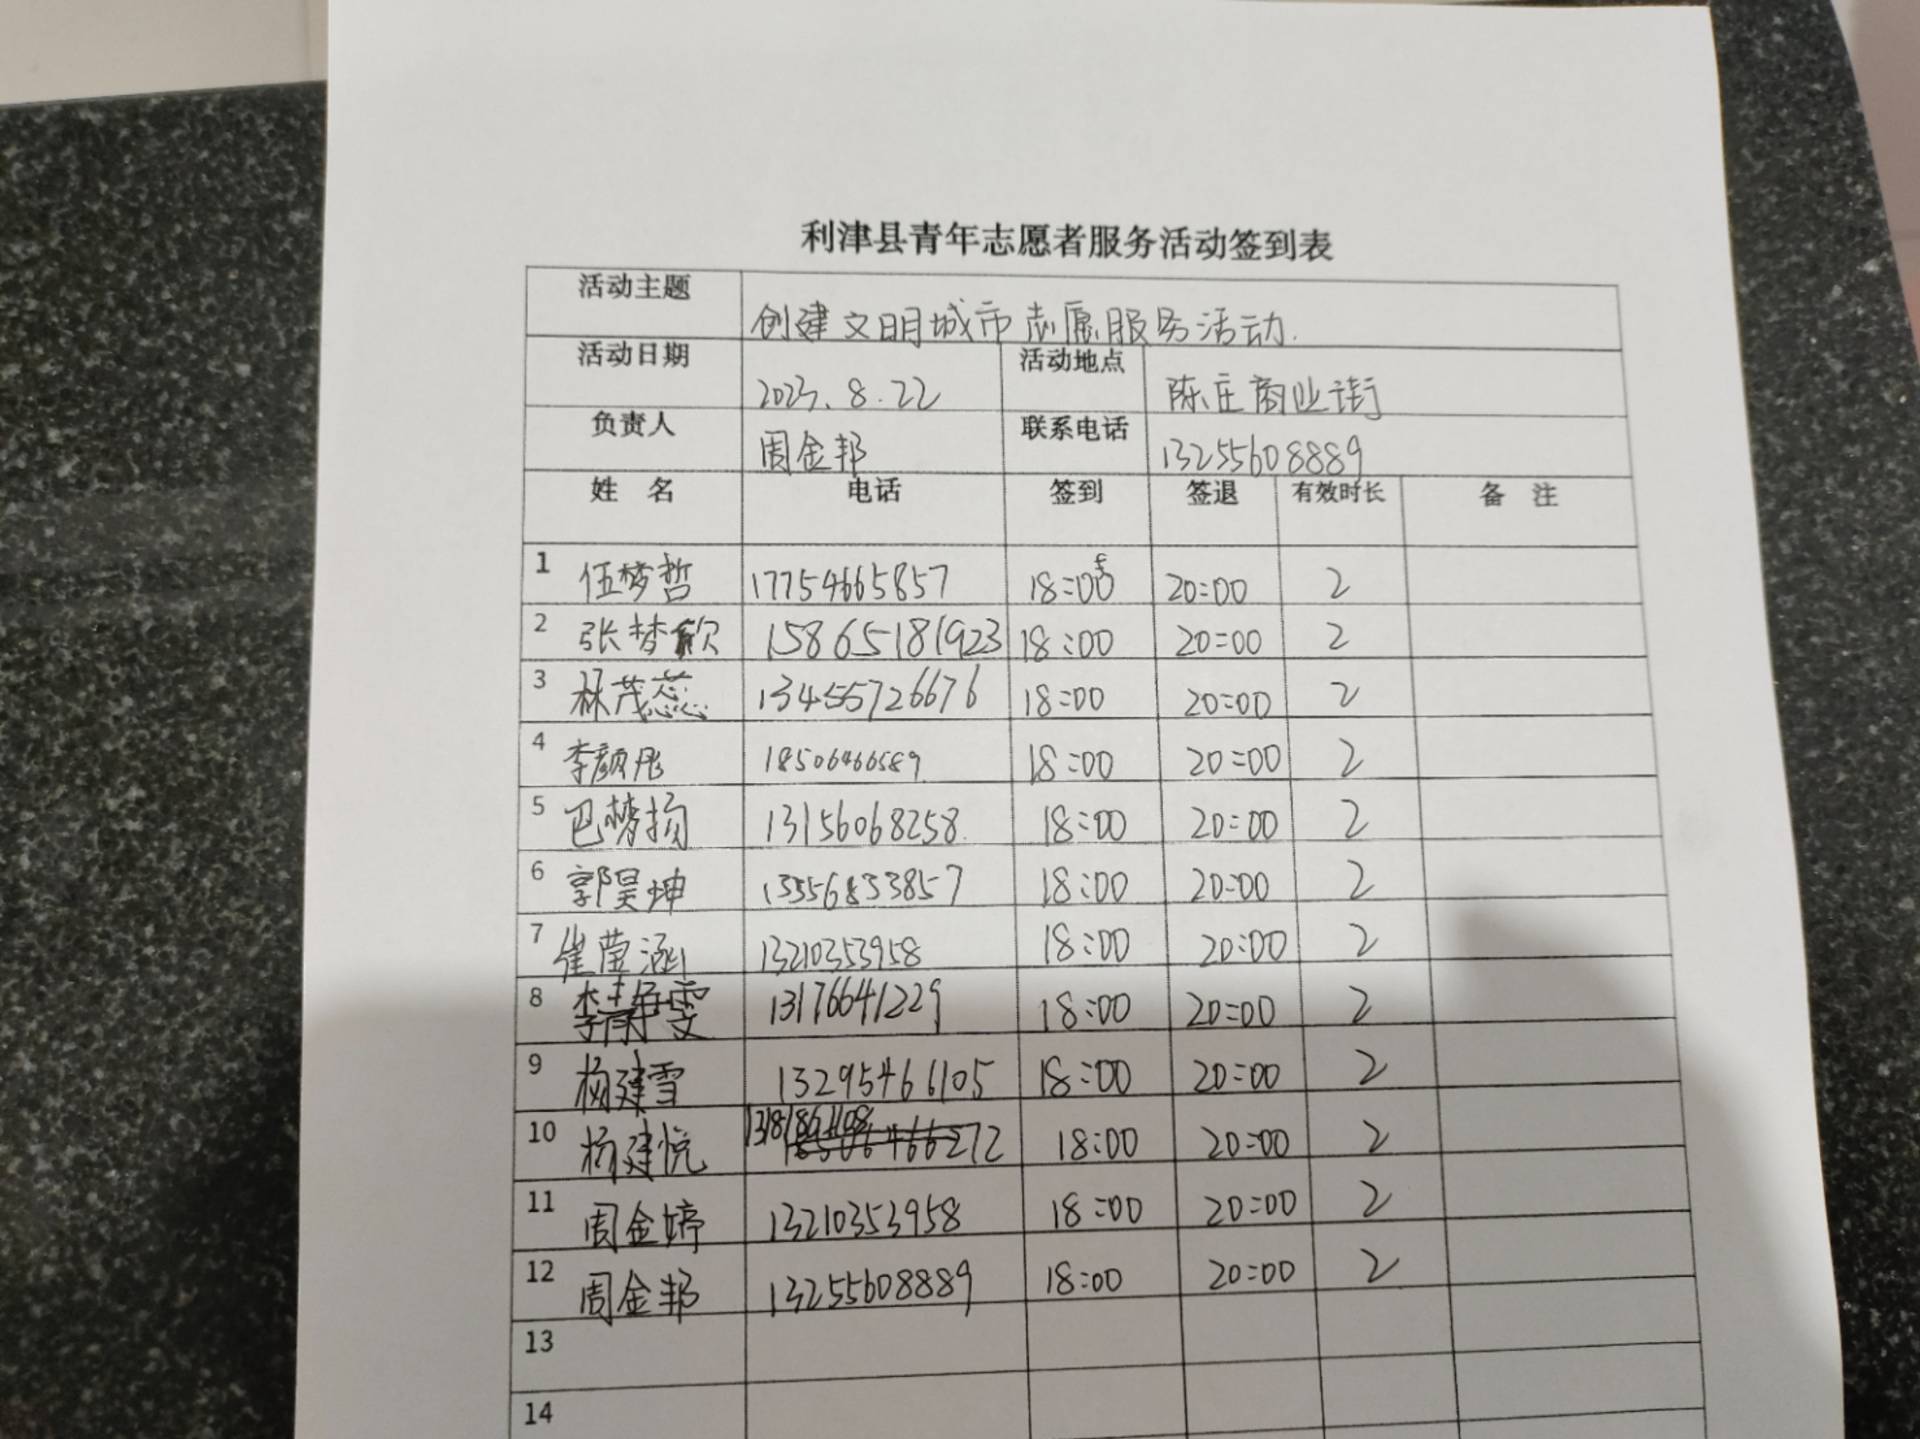 利津县青年志愿者服务活动签到表
活动主题 创建文明城市志愿服务活动.
活动日期 2023.8.22 活动地点 陈庄商业街
负责人 周金邦 联系电话 13255608889
姓 名 电话 签到 签退 有效时长 备 注
1 伍梦哲 17754665857 18:00 20:00 2
2 张梦欣 15865181923 18:00 20:00 2
3 林茂蕊 13455726676 18:00 20:00 2
4 李颜彤 18506466589 18:00 20:00 2
5 巴梦扬 13156068258 18:00 20:00 2
6 郭昊坤 13356833857 18:00 20:00 2
7 崔莹涵 13210353958 18:00 20:00 2
8 李静雯 13176641229 18:00 20:00 2
9 杨建雪 13295466105 18:00 20:00 2
10 杨建悦 18:00 20:00 2
11 周金婷 13210353958 18:00 20:00 2
12 周金邦 13255608889 18:00 20:00 2
13
14